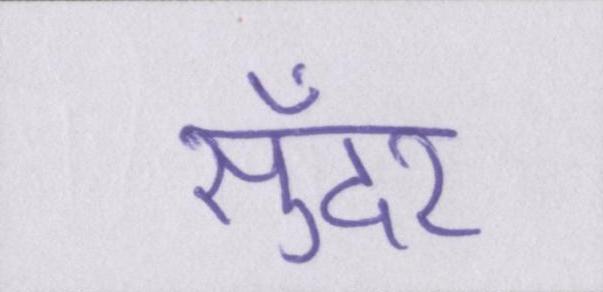 सुँदर